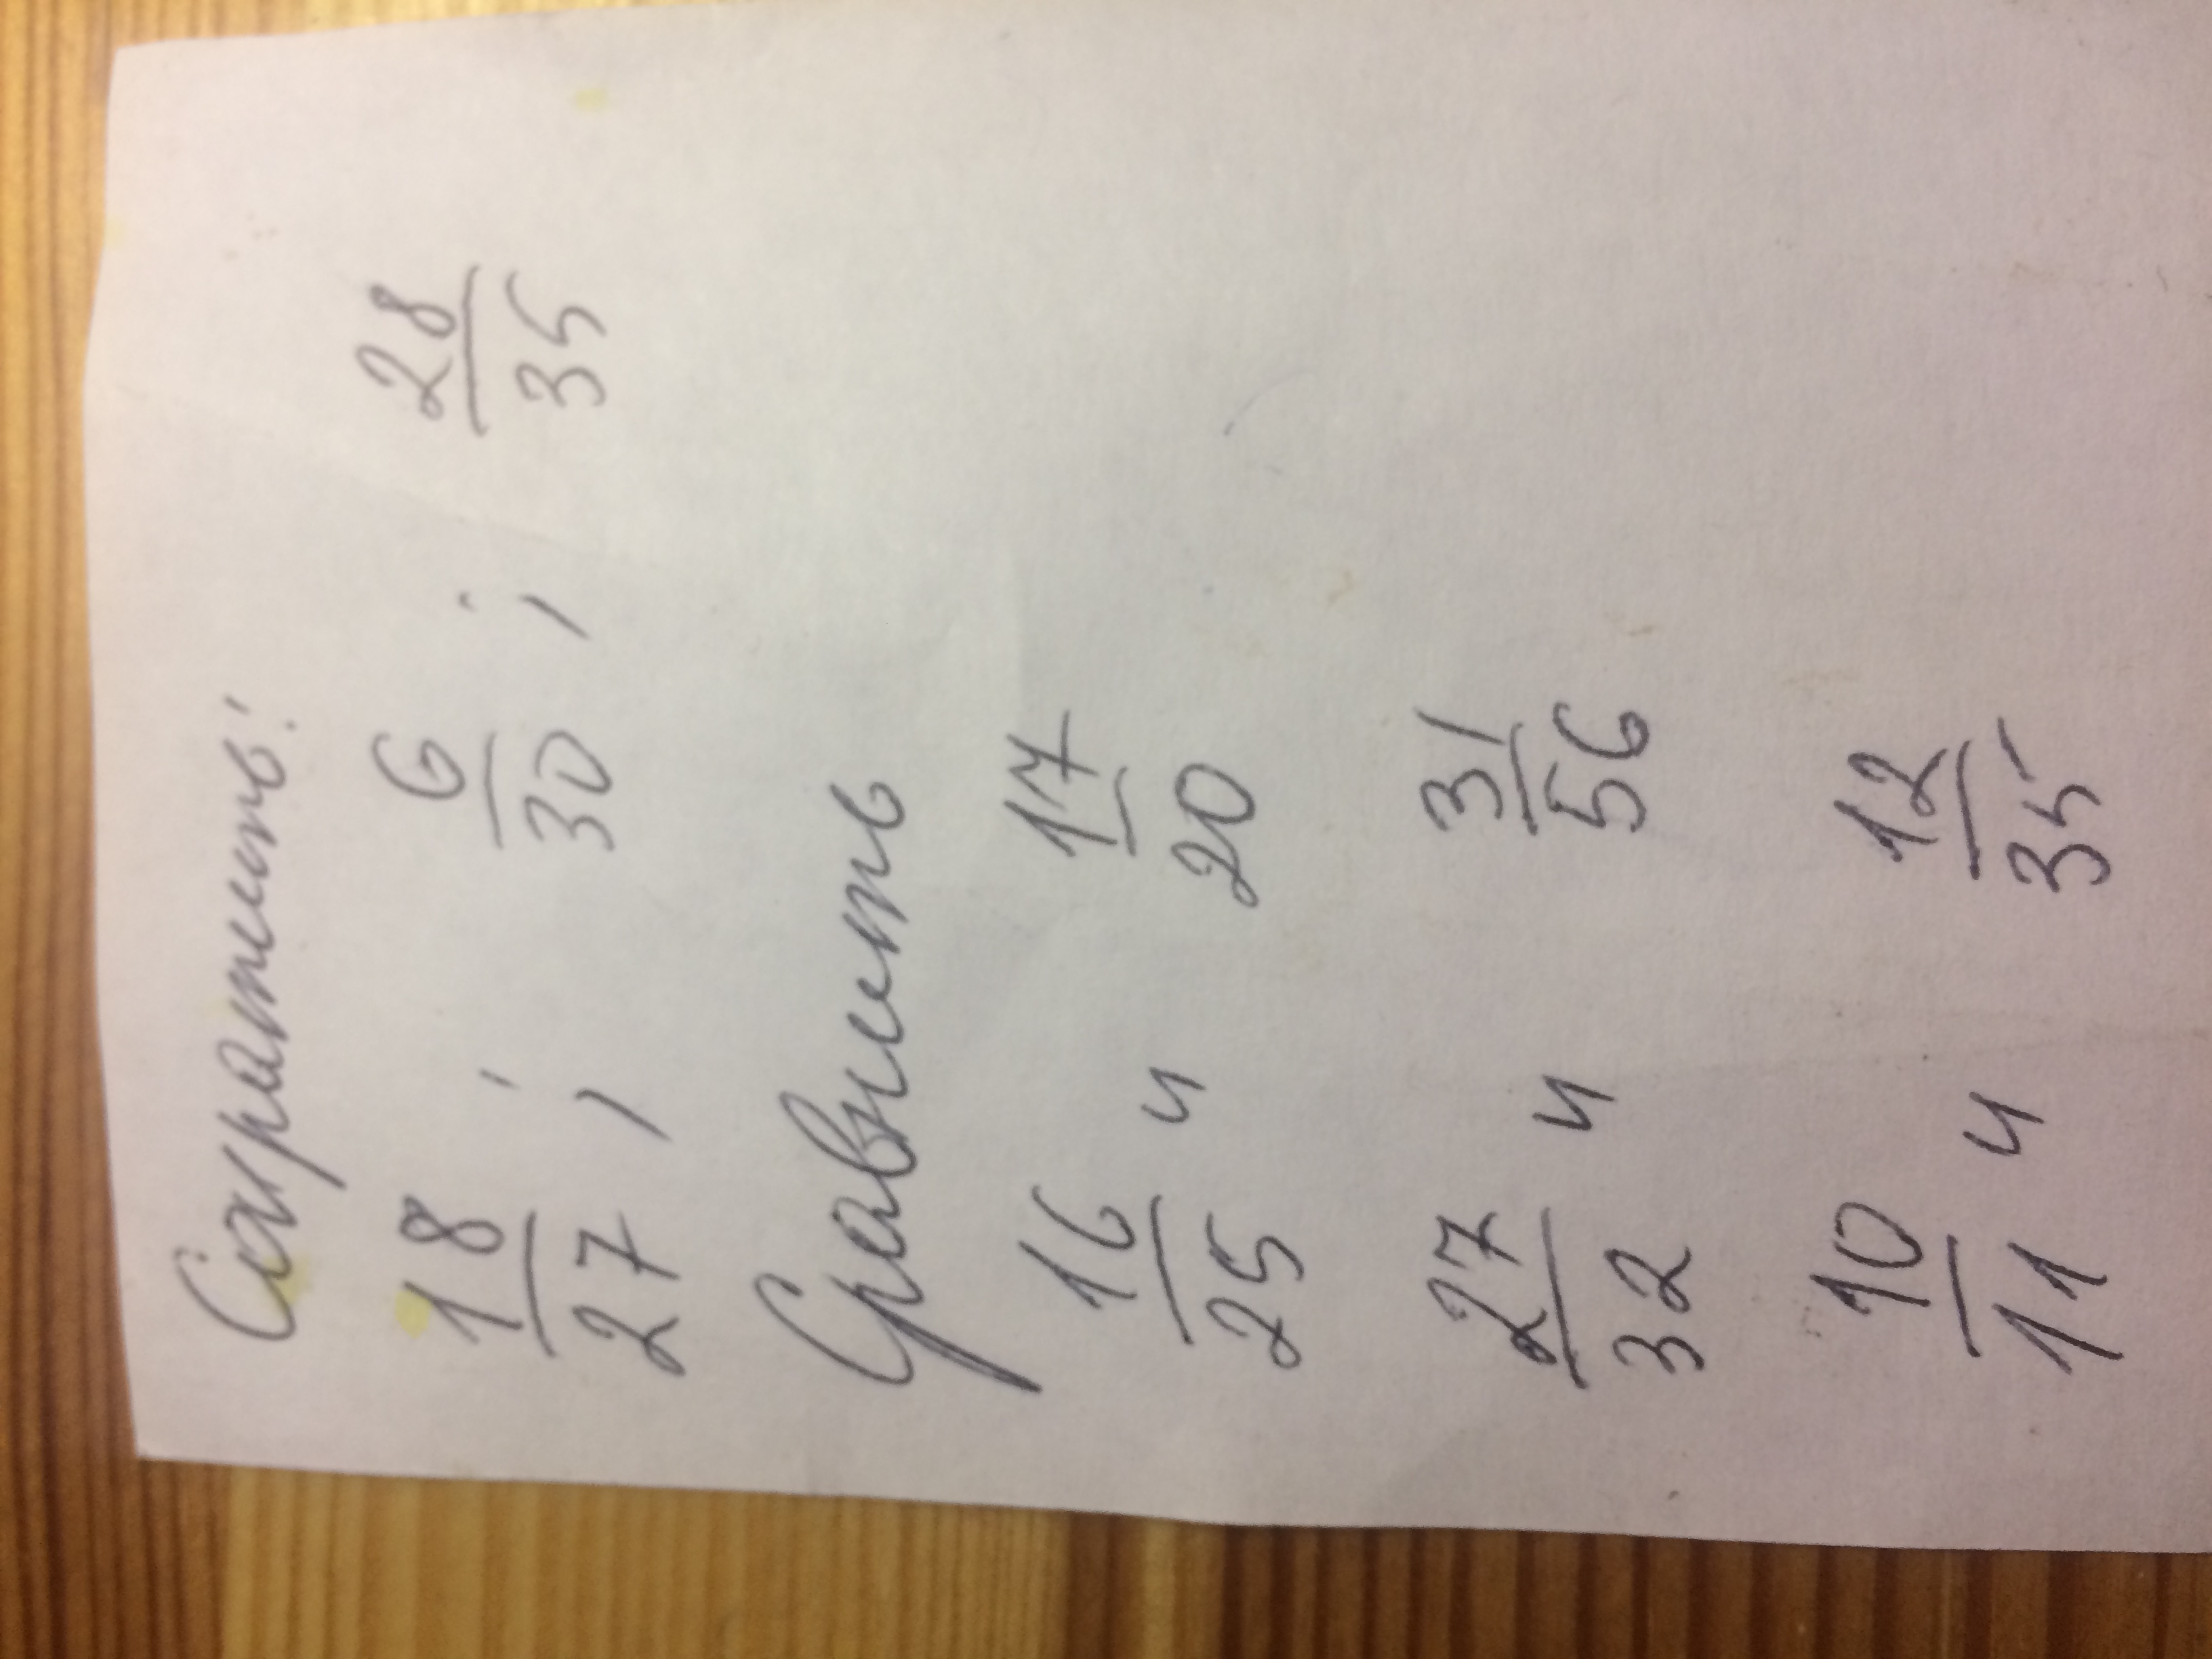 Сократить:
18/27 ; 6/30 ; 28/35
Сравнить
16/25 и 17/20
27/32 и 31/56
10/11 и 12/35